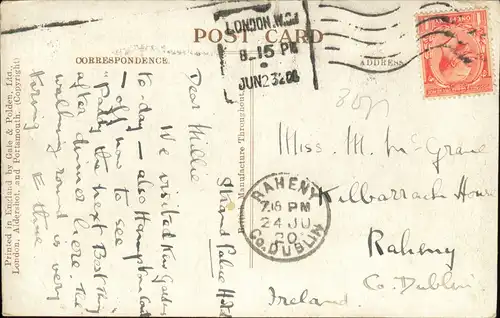 POST CARD
CORRESPONDENCE.
ADDRESS
LONDON. W.C.1
8.15 PM
JUN 23 20
Printed in England by Gale & Polden, Ltd.,
London, Aldershot, and Portsmouth. (Copyright)
Manufacture Throughout.
Strand Palace Hotel
Dear Millie
We visited Kew Gardens
to-day — also Hampton Court
— off now to see
"Paddy the next Best thing"
after dinner here the
walking round is very
tiring
RAHENY
7.15 PM
24 JU
20
Co. DUBLIN
Miss M. McGrane
Kilbarrack House
Raheny
Co. Dublin
Ireland